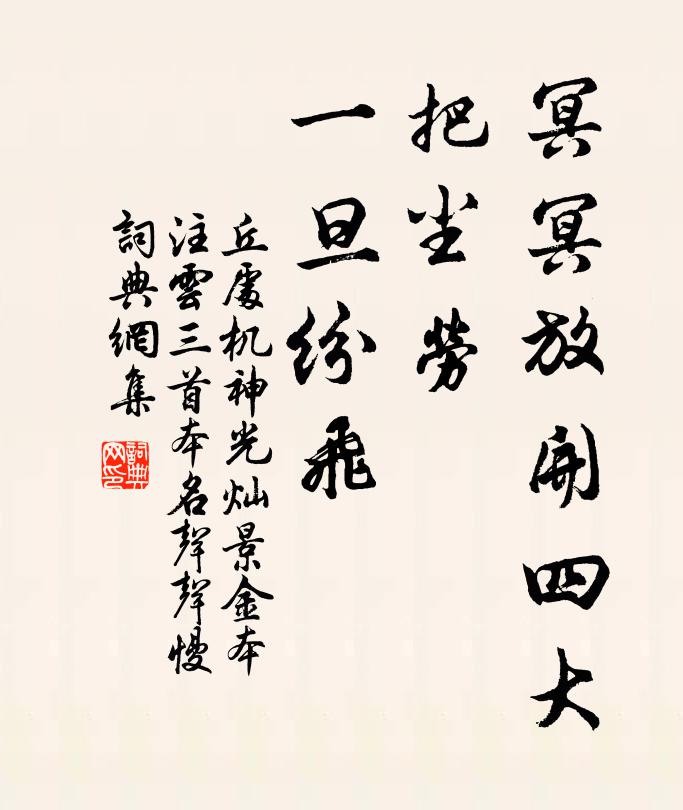 冥冥放開四大
把尘勞
一旦紛飛
丘處机神光灿景金本
注雲三首本名聲聲慢
詞典網集
詞典網印